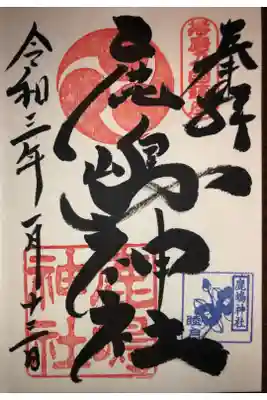 奉拝
鹿嶋神社
令和三年一月十三日
鹿嶋神社
鹿嶋神社
睦月